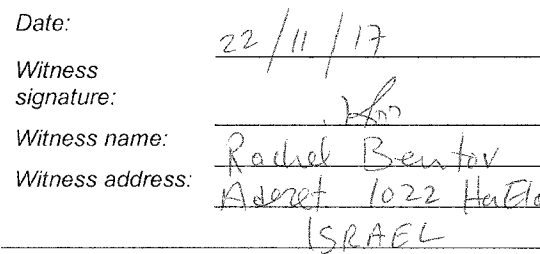 Date: 22/11/17
Witness
signature:
Witness name: Rachel Bentov
Witness address: Aderet 1022 HaEla
ISRAEL